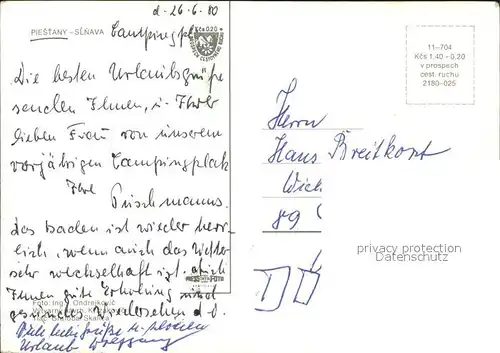 d. 26.6.80
PIEŠŤANY – SĹŇAVA
Campingpl
Kčs 0,20
Die besten Urlaubsgrüße
senden Ihnen, u. Ihrer
lieben Frau von unserem
vorjährigen Campingplatz
Ihre
das baden ist wieder herr-
lich, wenn auch das Wetter
sehr wechselhaft ist. auch
Ihnen gute Erholung und
gesundes Wiedersehen
Urlaub Wolfgang
Foto: Ing. Ondrejkovič
11–704
Kčs 1,40 + 0,20
v prospech
cest. ruchu
2180-025
Herrn
Hans Breitkopf
89
privacy protection
Datenschutz